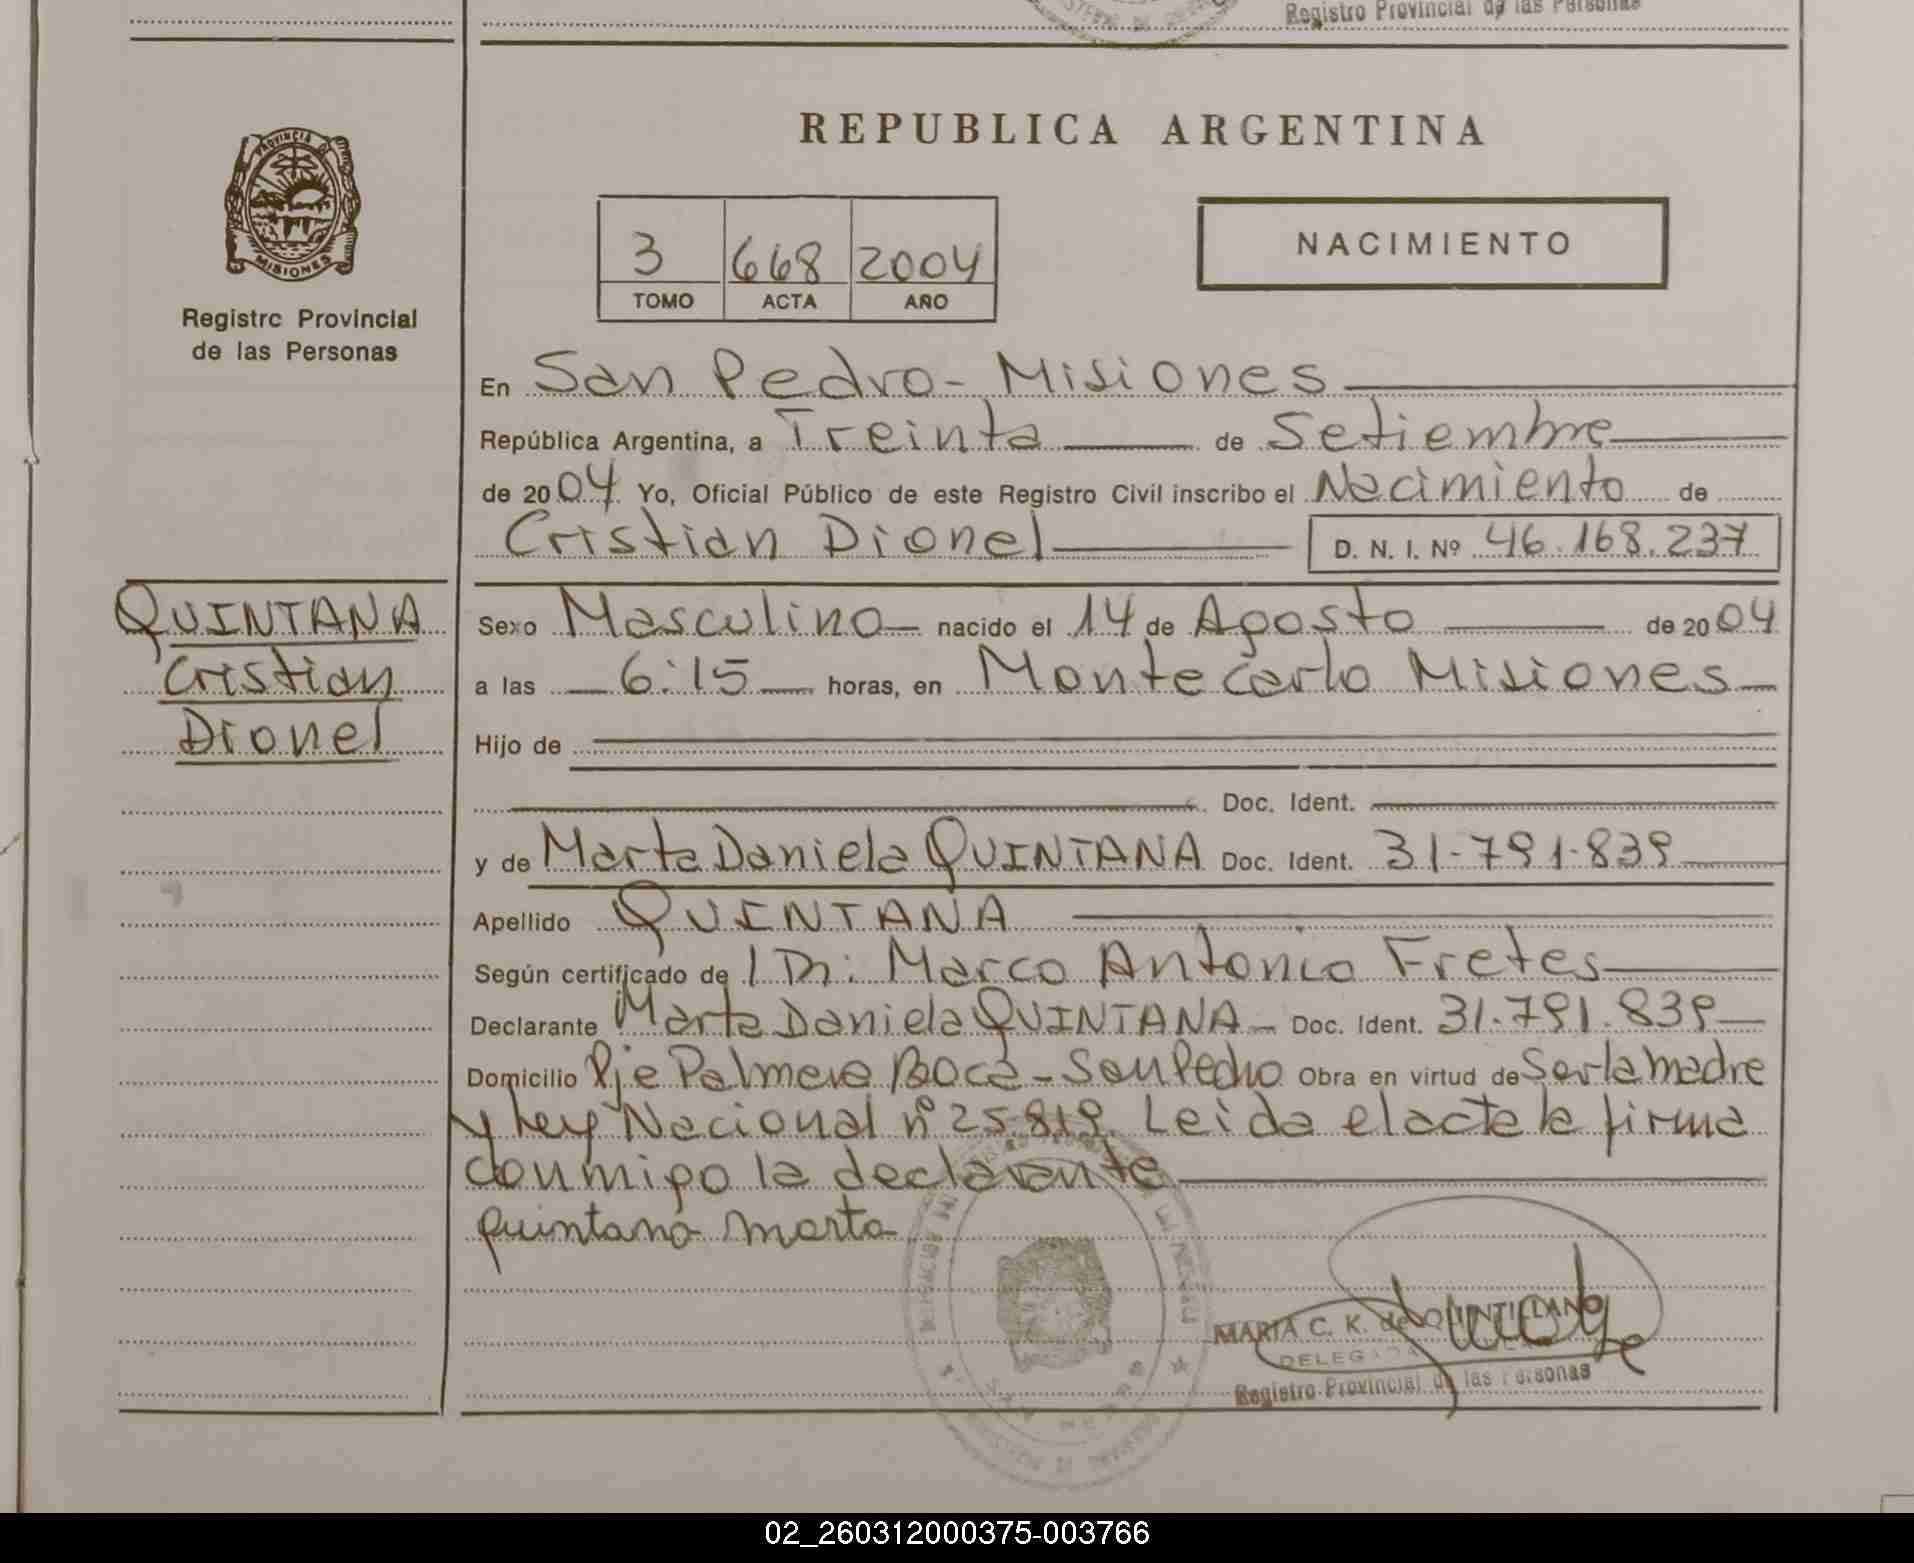 Registro Provincial de las Personas
REPUBLICA ARGENTINA
PROVINCIA DE
MISIONES
Registro Provincial
de las Personas
3 668 2004
TOMO ACTA AÑO
NACIMIENTO
En San Pedro - Misiones
República Argentina, a Treinta de Setiembre
de 2004 Yo, Oficial Público de este Registro Civil inscribo el Nacimiento de
Cristian Dionel D. N. I. Nº 46.168.237
QUINTANA
Cristian
Dionel
Sexo Masculino nacido el 14 de Agosto de 2004
a las 6:15 horas, en Montecarlo Misiones
Hijo de
Doc. Ident.
y de Marta Daniela QUINTANA Doc. Ident. 31-791-839
Apellido QUINTANA
Según certificado de Marco Antonio Fretes
Declarante Marta Daniela QUINTANA - Doc. Ident. 31.791.839
Domicilio Pje Palmera Boca - San Pedro Obra en virtud de Ser la madre
y Ley Nacional nº 25.819. Leida el acta la firma
conmigo la declarante
quintana marta
MARIA C. K. de QUINTILLANO
DELEGADA
Registro Provincial de las Personas
02_260312000375-003766